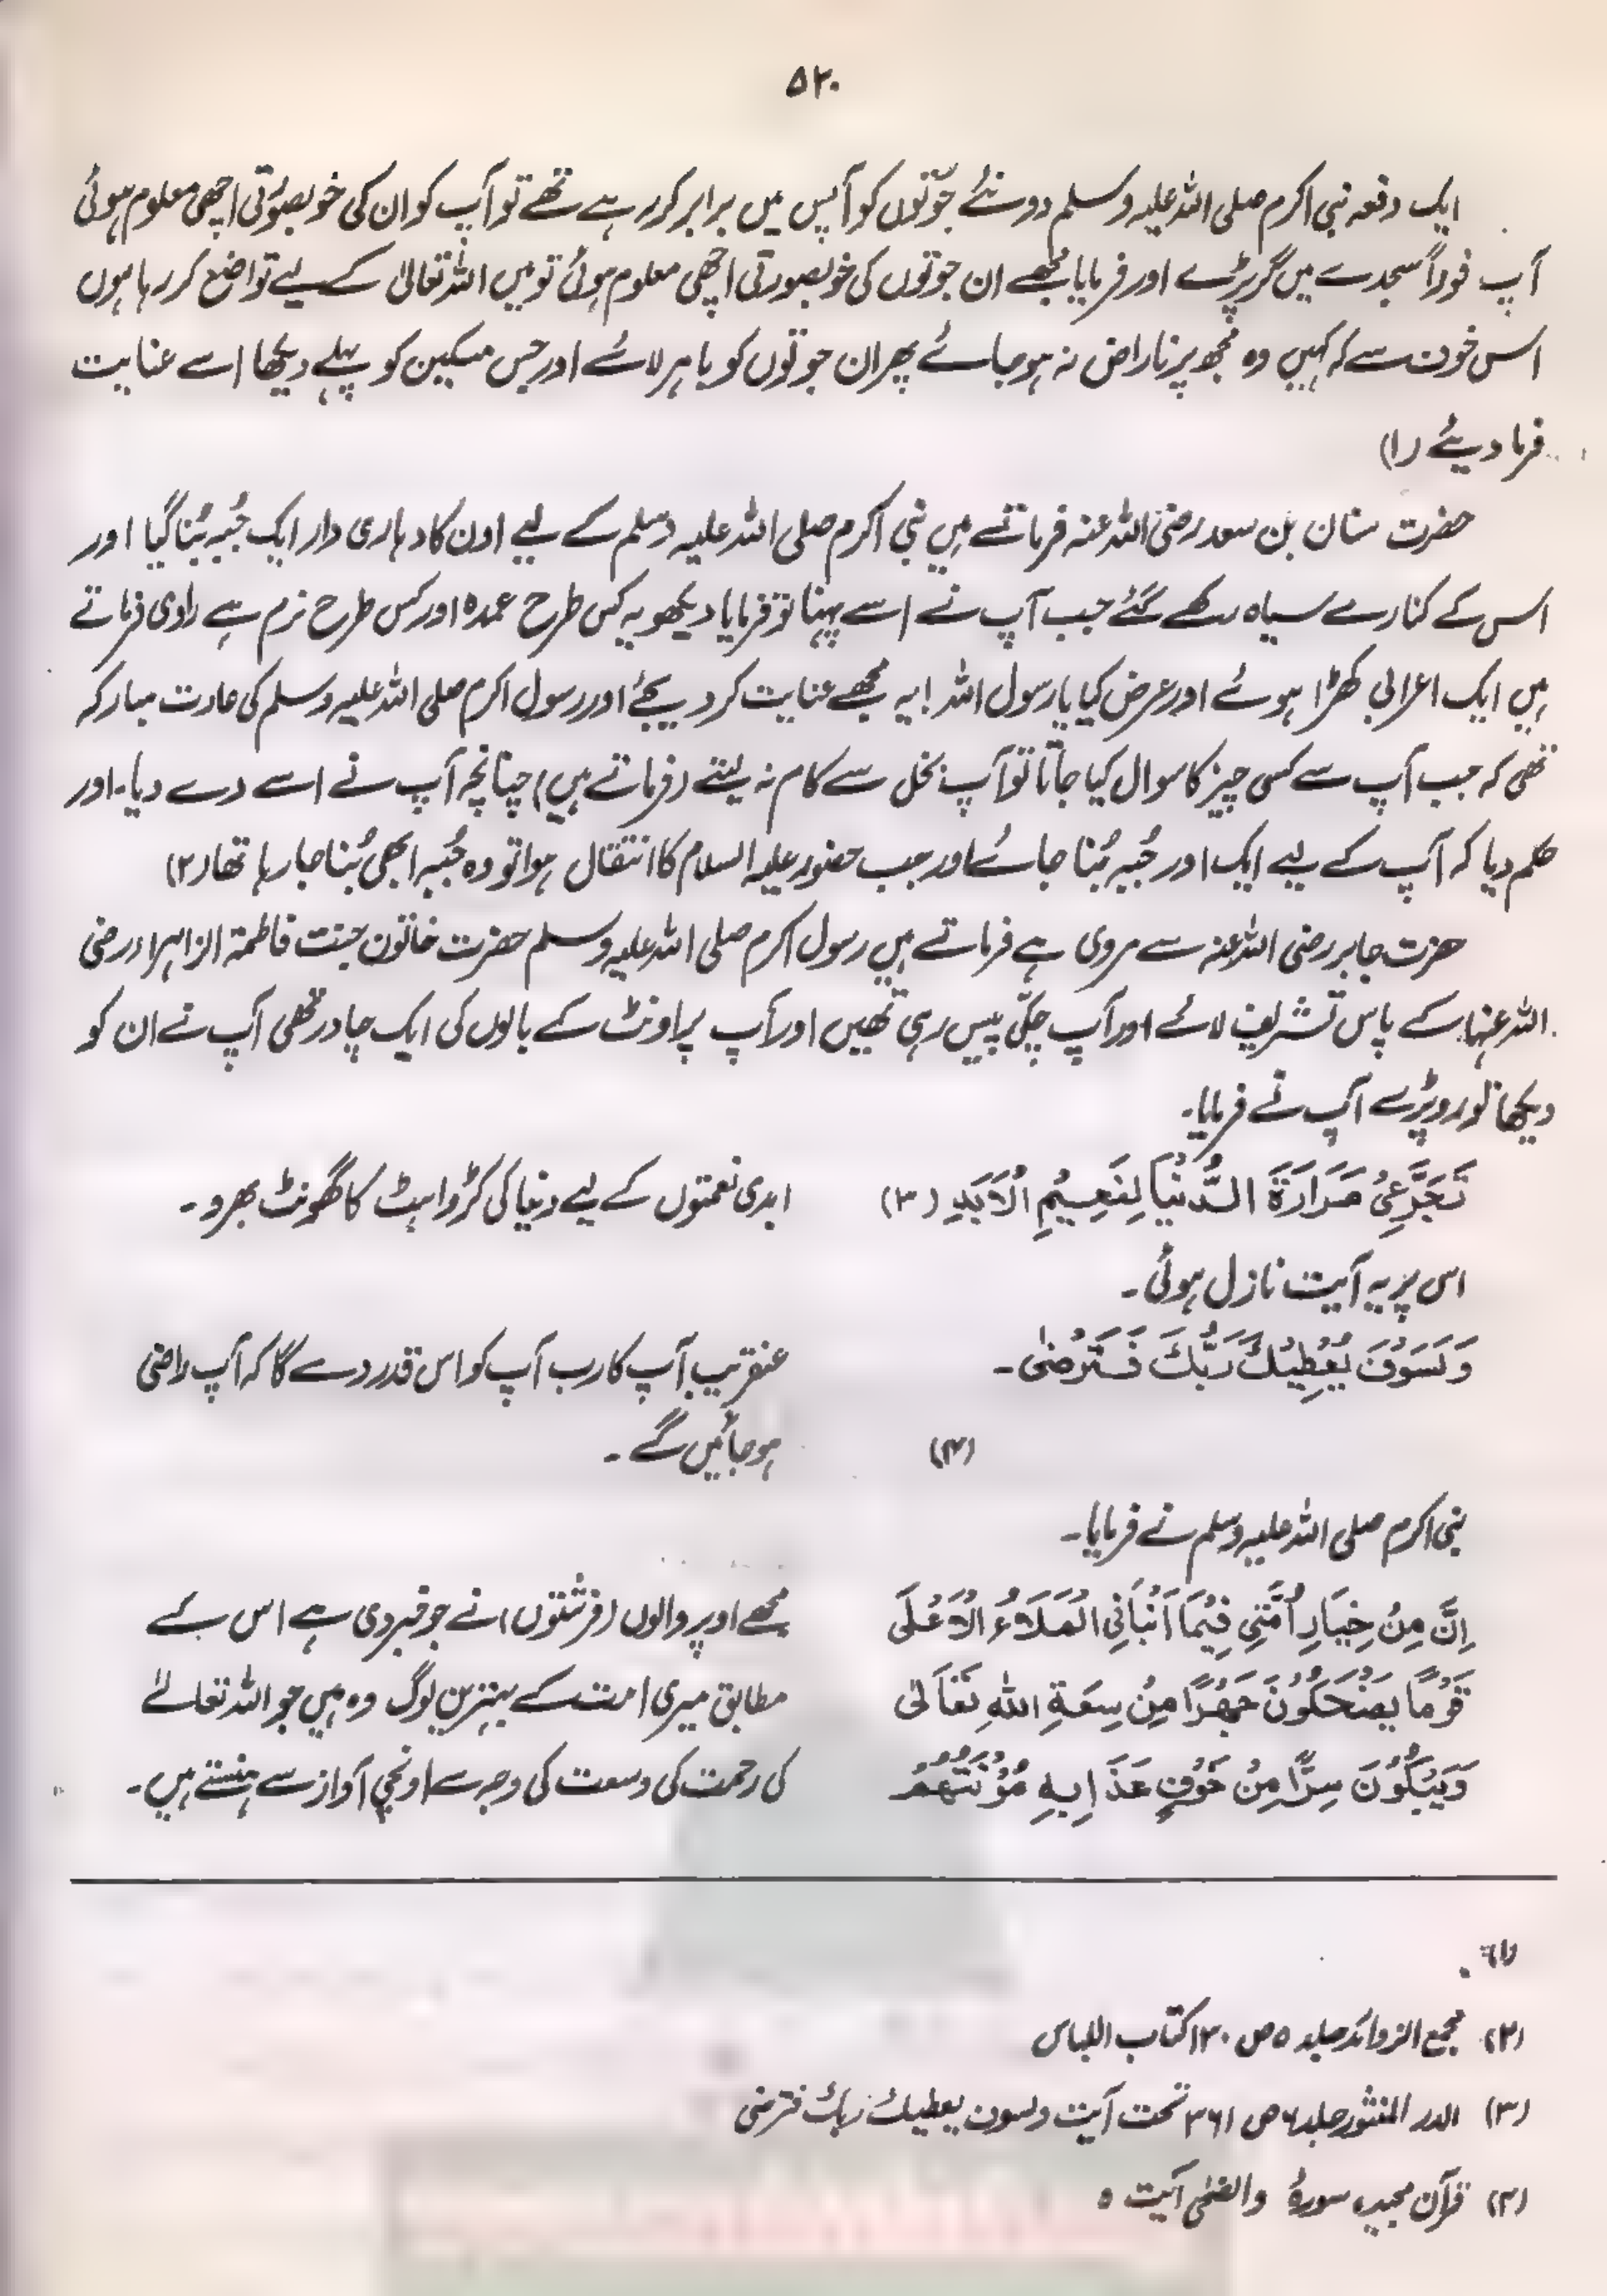 ۵۲۰
ایک دفعہ نبی اکرم صلی اللہ علیہ وسلم دو نئے جوتوں کو آپس میں برابر کر رہے تھے تو آپ کو ان کی خوبصورتی اچھی معلوم ہوئی
آپ فوراً سجدے میں گر پڑے اور فرمایا مجھے ان جوتوں کی خوبصورتی اچھی معلوم ہوئی تو میں اللہ تعالیٰ کے لیے تواضع کر رہا ہوں
اس خوف سے کہ کہیں وہ مجھ پر ناراض نہ ہو جائے پھر ان جوتوں کو باہر لائے اور جس مسکین کو پہلے دیکھا اسے عنایت
فرما دیئے (۱)
حضرت سنان بن سعد رضی اللہ عنہ فرماتے ہیں نبی اکرم صلی اللہ علیہ وسلم کے لیے اون کا دہاری دار ایک جُبہ بُنا گیا اور
اس کے کنارے سیاہ رکھے گئے جب آپ نے اسے پہنا تو فرمایا دیکھو یہ کس طرح عمدہ اور کس طرح نرم ہے راوی فرماتے
ہیں ایک اعرابی کھڑا ہوئے اور عرض کیا یا رسول اللہ! یہ مجھے عنایت کر دیجئے اور رسول اکرم صلی اللہ علیہ وسلم کی عادت مبارکہ
تھی کہ جب آپ سے کسی چیز کا سوال کیا جاتا تو آپ بخل سے کام نہ لیتے (فرماتے ہیں) چنانچہ آپ نے اسے دے دیا۔ اور
حکم دیا کہ آپ کے لیے ایک اور جُبہ بُنا جائے اور جب حضور علیہ السلام کا انتقال ہوا تو وہ جُبہ ابھی بُنا جا رہا تھا (۲)
حضرت جابر رضی اللہ عنہ سے مروی ہے فرماتے ہیں رسول اکرم صلی اللہ علیہ وسلم حضرت خاتون جنت فاطمۃ الزاہراء رضی
اللہ عنہا کے پاس تشریف لائے اور آپ چکی پیس رہی تھیں اور آپ پر اونٹ کے بالوں کی ایک چادر تھی آپ نے ان کو
دیکھا تو رو پڑے آپ نے فرمایا۔
تَجَرَّعِیْ مَرَارَةَ الدُّنْیَا لِنَعِیْمِ الْاَبَدِ (۳) ابدی نعمتوں کے لیے دنیا کی کڑواہٹ کا گھونٹ بھرو۔
اس پر یہ آیت نازل ہوئی۔
وَلَسَوْفَ یُعْطِیْكَ رَبُّكَ فَتَرْضٰی۔ عنقریب آپ کا رب آپ کو اس قدر دے گا کہ آپ راضی
(۴) ہو جائیں گے۔
نبی اکرم صلی اللہ علیہ وسلم نے فرمایا۔
اِنَّ مِنْ خِیَارِ اُمَّتِیْ فِیْمَا اَنْبَاَنِی الْمَلَاءُ الْاَعْلَی مجھے اوپر والوں (فرشتوں) نے جو خبر دی ہے اس کے
قَوْمًا یَضْحَكُوْنَ جَهْرًا مِنْ سِعَةِ اللهِ تَعَالٰی مطابق میری امت کے بہترین لوگ وہ ہیں جو اللہ تعالےٰ
وَیَبْكُوْنَ سِرًّا مِنْ خَوْفِ عَذَابِهِ مُؤْنَتُهُمْ کی رحمت کی وسعت کی وجہ سے اونچی آواز سے ہنستے ہیں۔
(۱)
(۲) مجمع الزوائد جلد ۵ ص ۱۳۰ کتاب اللباس
(۳) الدر المنثور جلد ۶ ص ۳۶۱ تحت آیت ولسوف یعطیک ربک فترضی
(۴) قرآن مجید سورۂ والضحیٰ آیت ۵